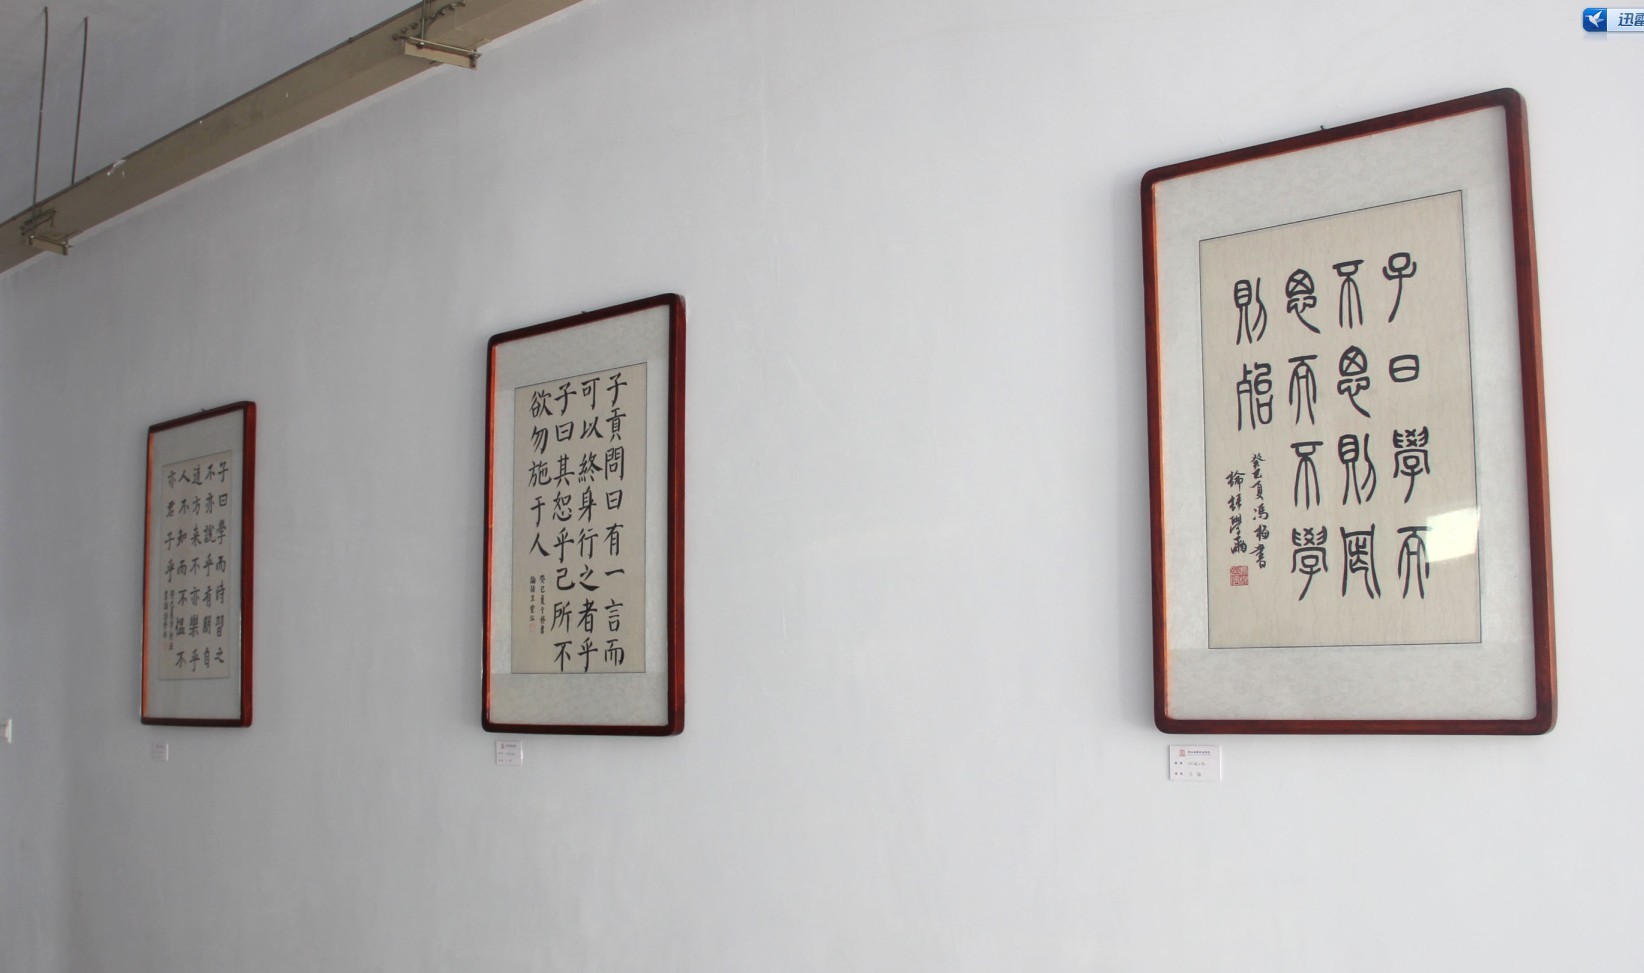 子曰學而
不思則罔
思而不學
則殆
癸巳夏馮書
論語學而
子貢問曰有一言而
可以終身行之者乎
子曰其恕乎己所不
欲勿施于人
癸巳夏書
論語
子曰學而時習之
不亦說乎有朋自
遠方来不亦樂乎
人不知而不愠不
亦君子乎
迅